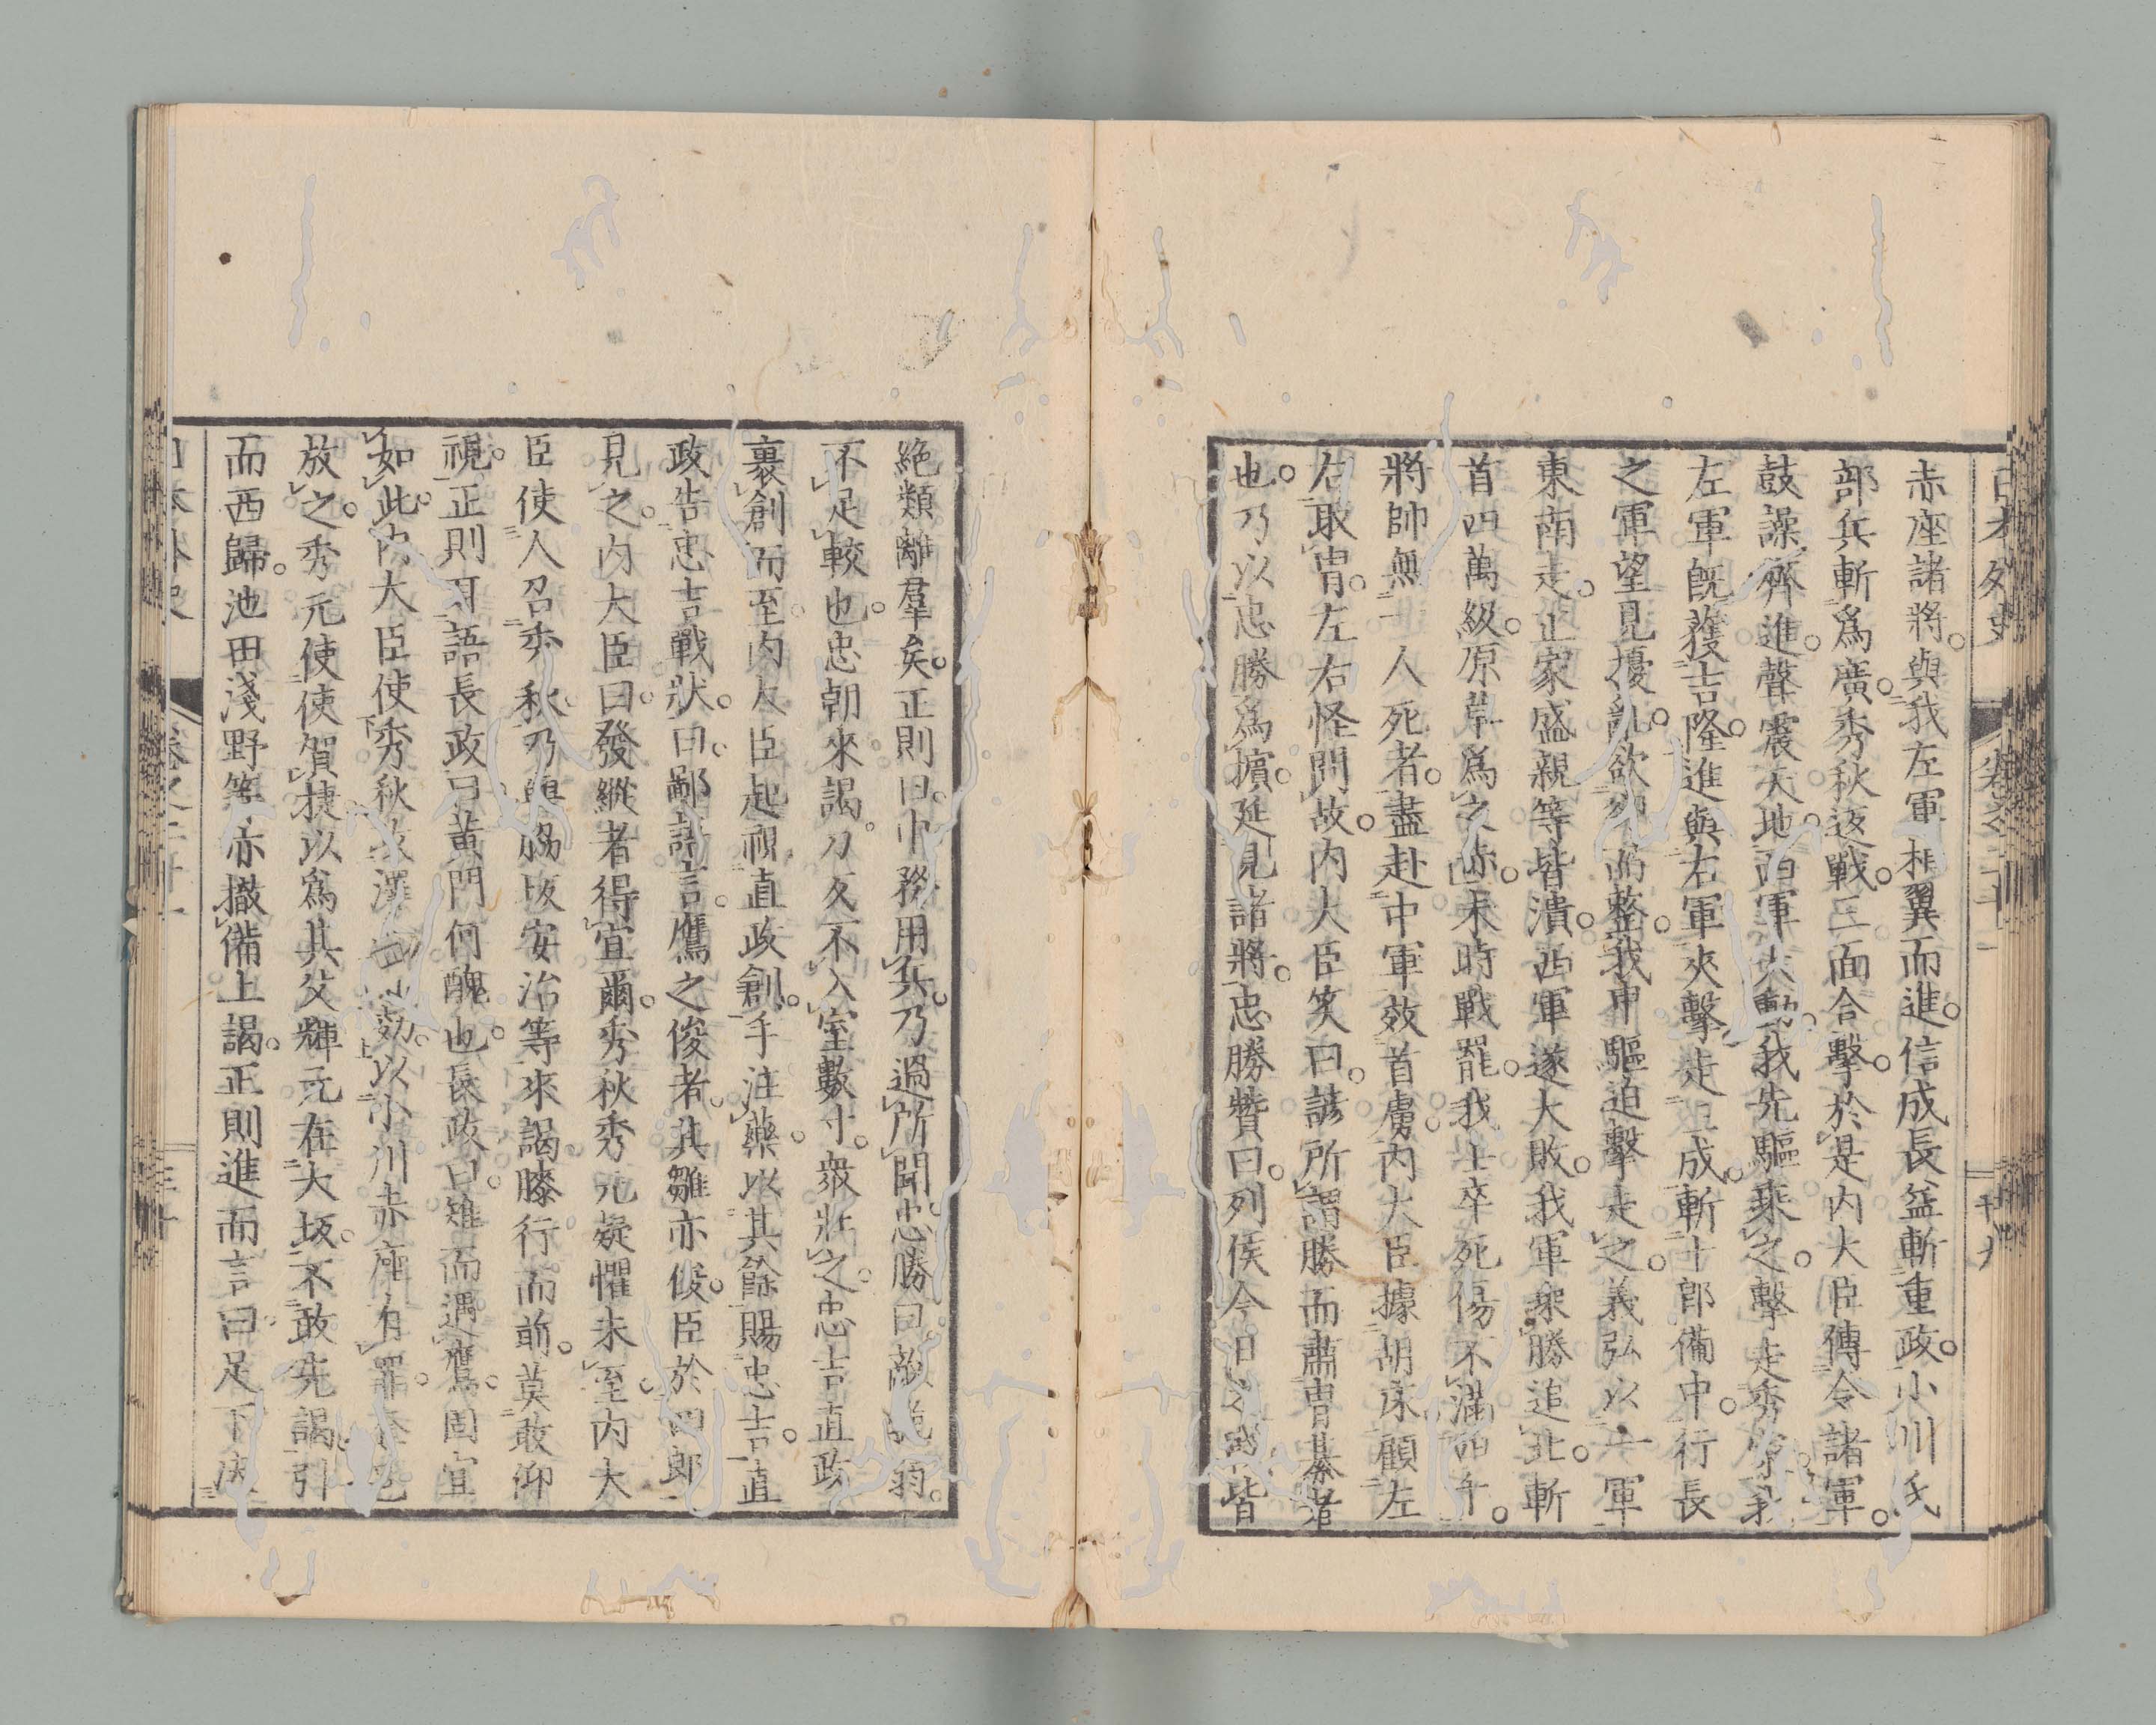 日本外史 卷之二十一 廿九
赤座諸將。與我左軍相翼而進。信成長益斬重政。小川氏
部兵斬爲廣。秀秋返戰。三面合擊。於是内大臣傳令諸軍。
鼓譟齊進。聲震天地。西軍大動。我先驅乘之。擊走秀家。我
左軍既獲吉隆。進與右軍夾擊走三成。斬十郎備中。行長
之軍望見擾亂。欲却而整。我中驅迫擊走之。義弘以一軍
東南走。止家盛親等皆潰。西軍遂大敗。我軍乘勝追北。斬
首四萬級。原草爲之赤。未時戰罷。我士卒死傷不滿四千。
將帥無一人死者。盡赴中軍效首虜。内大臣據胡床。顧左
右取冑。左右怪問故。内大臣笑曰。諺所謂勝而肅冑綦者
也。乃以忠勝爲擯。延見諸將。忠勝贊曰。列侯今日之戰皆
絶類離羣矣。正則曰。中務用兵。乃過所聞。忠勝曰敵脆弱。
不足較也。忠朝來謁。刀反不入室數寸。衆壯之。忠吉直政
裹創而至。内大臣起視直政創。手注藥。以其餘賜忠吉。直
政告忠吉戰狀。曰。鄙諺言。鷹之俊者。其雛亦俊。臣於四郎
見之。内大臣曰。發縱者得宜爾。秀秋秀元疑懼未至。内大
臣使人召秀秋。乃與脇坂安治等來謁。膝行而前。莫敢仰
視。正則目語長政曰。黄門何醜也。長政曰。雉而遇鷹。固宜
如此。内大臣使秀秋攻澤山自効。以小川赤座有罪
放之。秀元使使賀捷。以爲其父輝元在大坂。不敢先謁。引
而西歸。池田淺野等亦撤備上謁。正則進而言曰。足下
日本外史 卷之二十一 三十